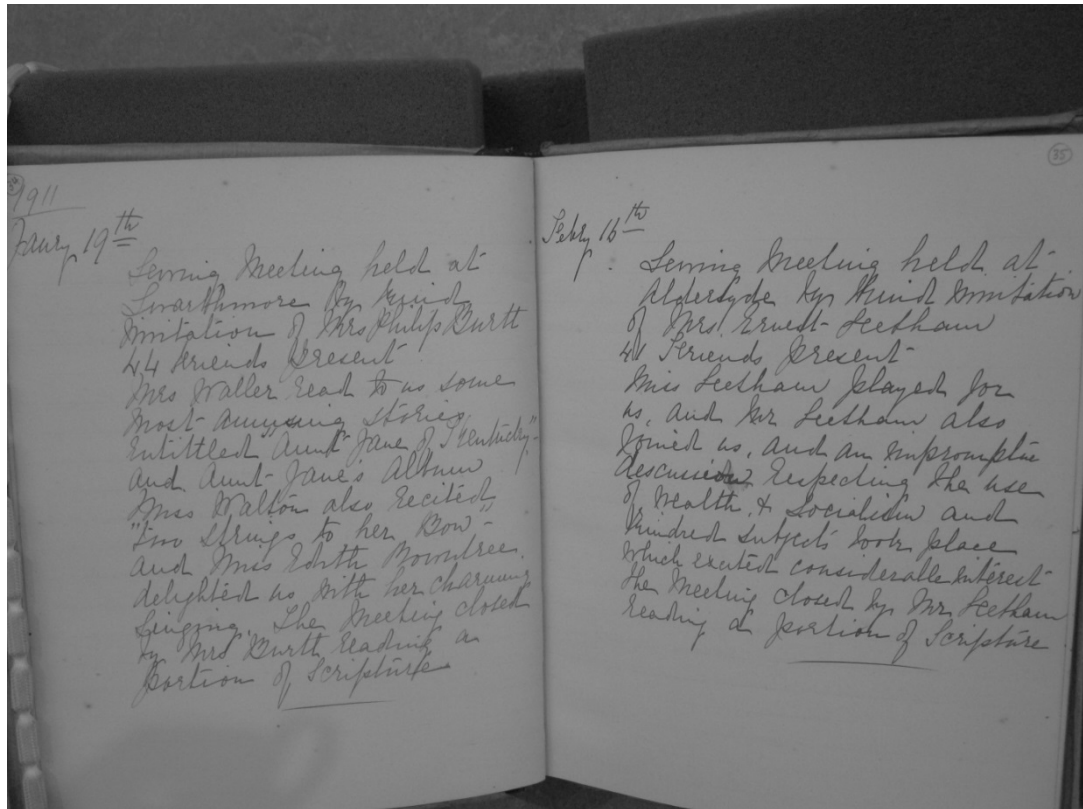 1911
Janry 19th
Sewing Meeting held at
Swarthmore by kind
invitation of Mrs Philip Burtt
44 Friends present
Mrs Waller read to us some
most amusing stories
entittled "Aunt Jane of Kentucky"
and Aunt Jane's Album
Miss Walton also recited
"Two Strings to her Bow"
and Miss Edith Rowntree
delighted us with her charming
singing. The Meeting closed
by Mrs Burtt reading a
portion of Scripture
35
Febry 16th
Sewing Meeting held at
Aldersyde by kind invitation
of Mrs Ernest Leetham
41 Friends present
Miss Leetham played for
us, and Mr Leetham also
joined us, and an impromptu
discussion respecting the use
of wealth, & Socialism and
kindred subjects took place
which excited considerable interest
the Meeting closed by Mr Leetham
reading a portion of Scripture